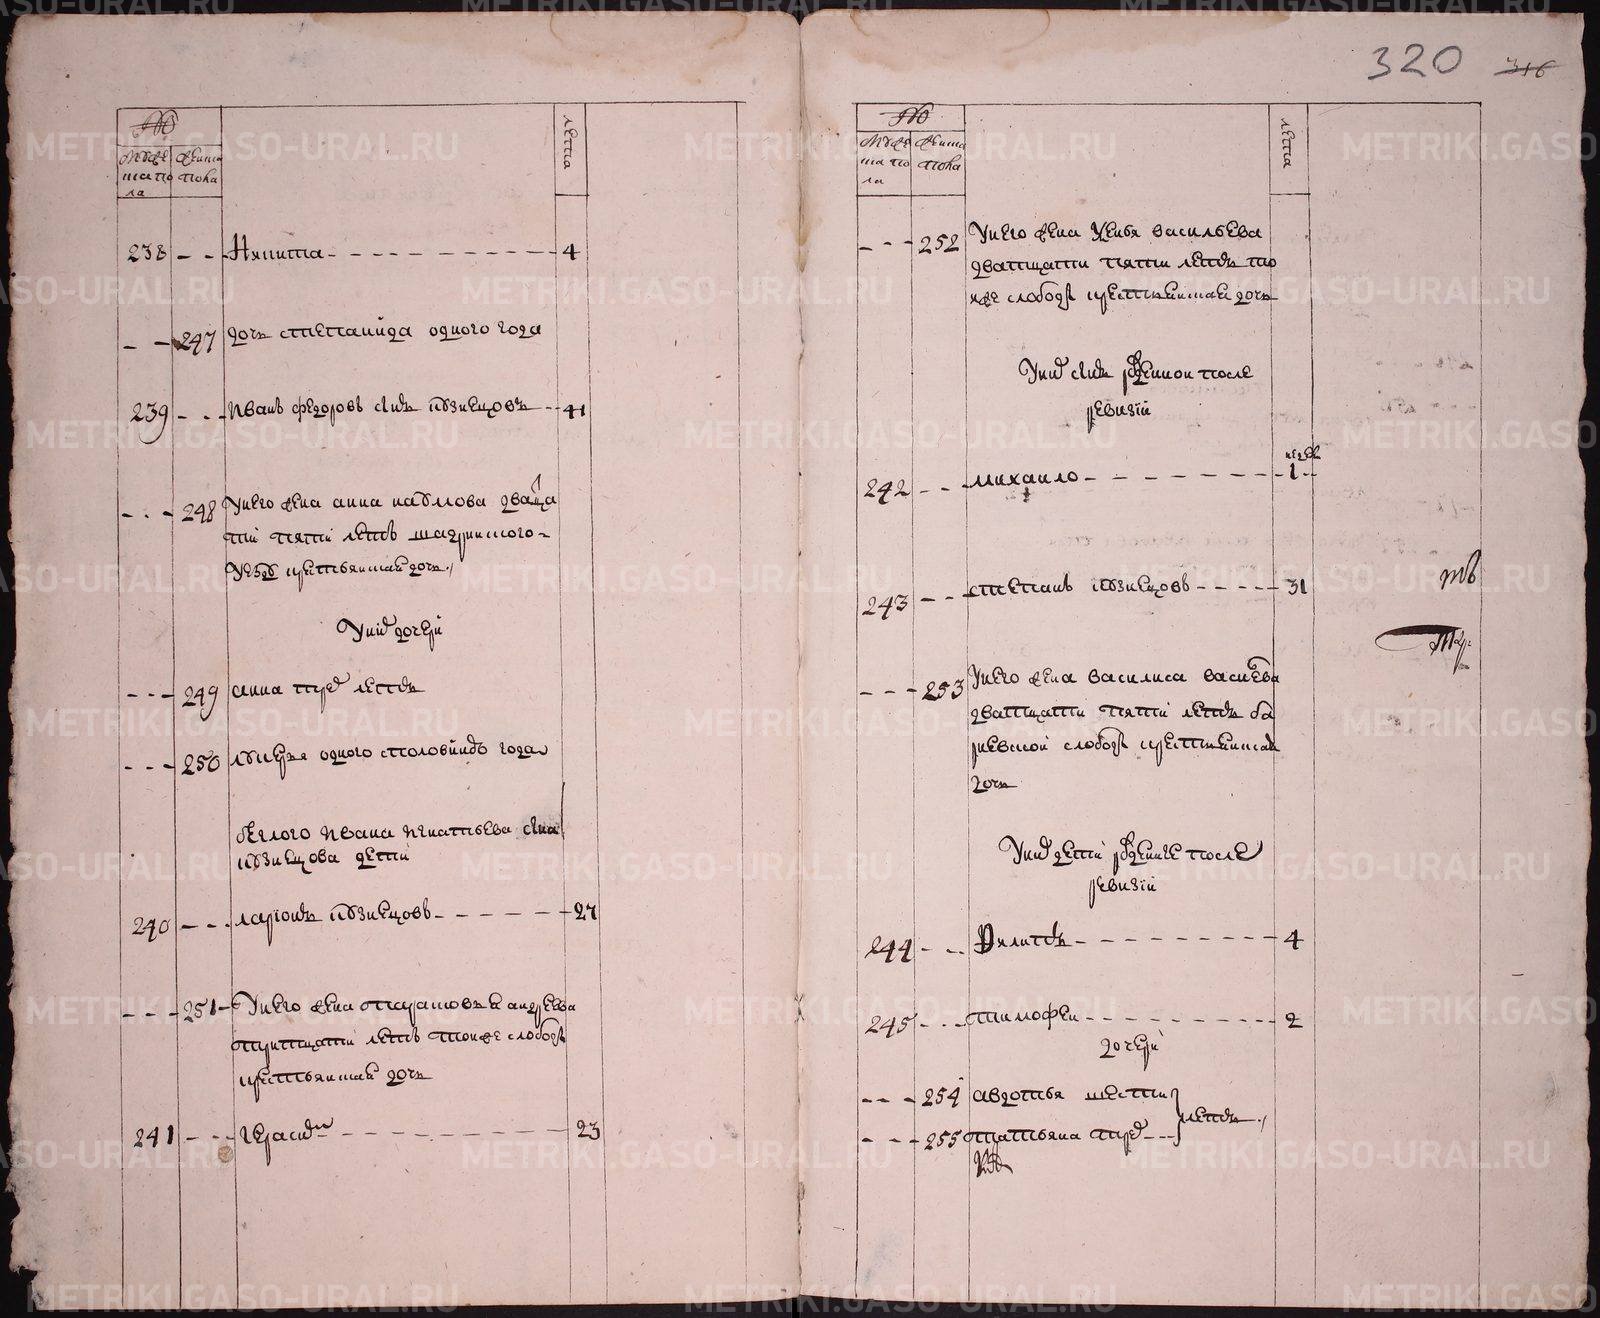 320 316
№
мужеска пола
женска пола
лета
238 Никита 4
247 дочь степанида одного года
239 иванъ федоровъ снъ кузнецовъ 41
248 Унего жена анна павлова дватца
ти пяти летъ шадринского
уезду крестьянская дочь
Унихъ дочери
249 анна трехъ летъ
250 лукерья одного споловиною года
беглого ивана игнатьева сна
кузнецова дети
240 ларионъ кузнецовъ 27
251 Унего жена парасковья андреева
тритцати летъ тоиже слободы
крестьянская дочь
241 герасимъ 23
№
мужеска пола
женска пола
лета
252 Унего жена васильева
дватцати пяти летъ то
иже слободы крестьянская дочь
Унихъ снъ рожденнои после
ревизіи
242 михаило 1
243 степанъ кузнецовъ 31
253 Унего жена василиса васильева
дватцати пяти летъ
слободы крестьянская
дочь
Унихъ дети рожденые после
ревизіи
244 Филипъ 4
245 тимофеи 2
дочери
254 авдотья шести
летъ
255 татьяна трехъ
METRIKI.GASO-URAL.RU